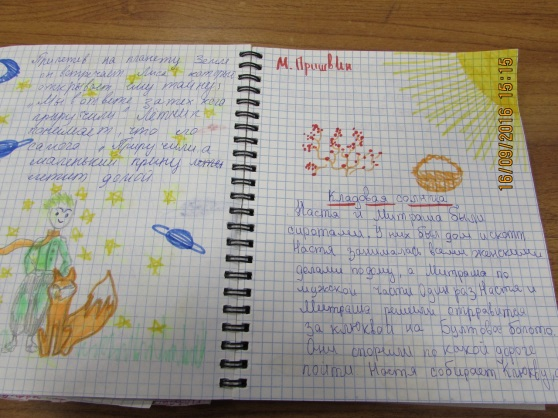 Прилетив на планету Земля
он встречает Лиса который
открывает ему тайну:
„Мы в ответе за тех кого
приручили" Летчик
понимает, что его
самого приручили, а
маленький принц
летит домой
М. Пришвин
Кладовая солнца
Настя и Митраша были
сиротами. У них был дом и скот
Настя занималась всеми женскими
делами по дому, а Митраша по
мужской части Один раз Настя и
Митраша решили отправится
за клюквой на Блудово болото
Они спорили по какой дороге
пойти Настя собирает клюкву, а
16/09/2016 15:15